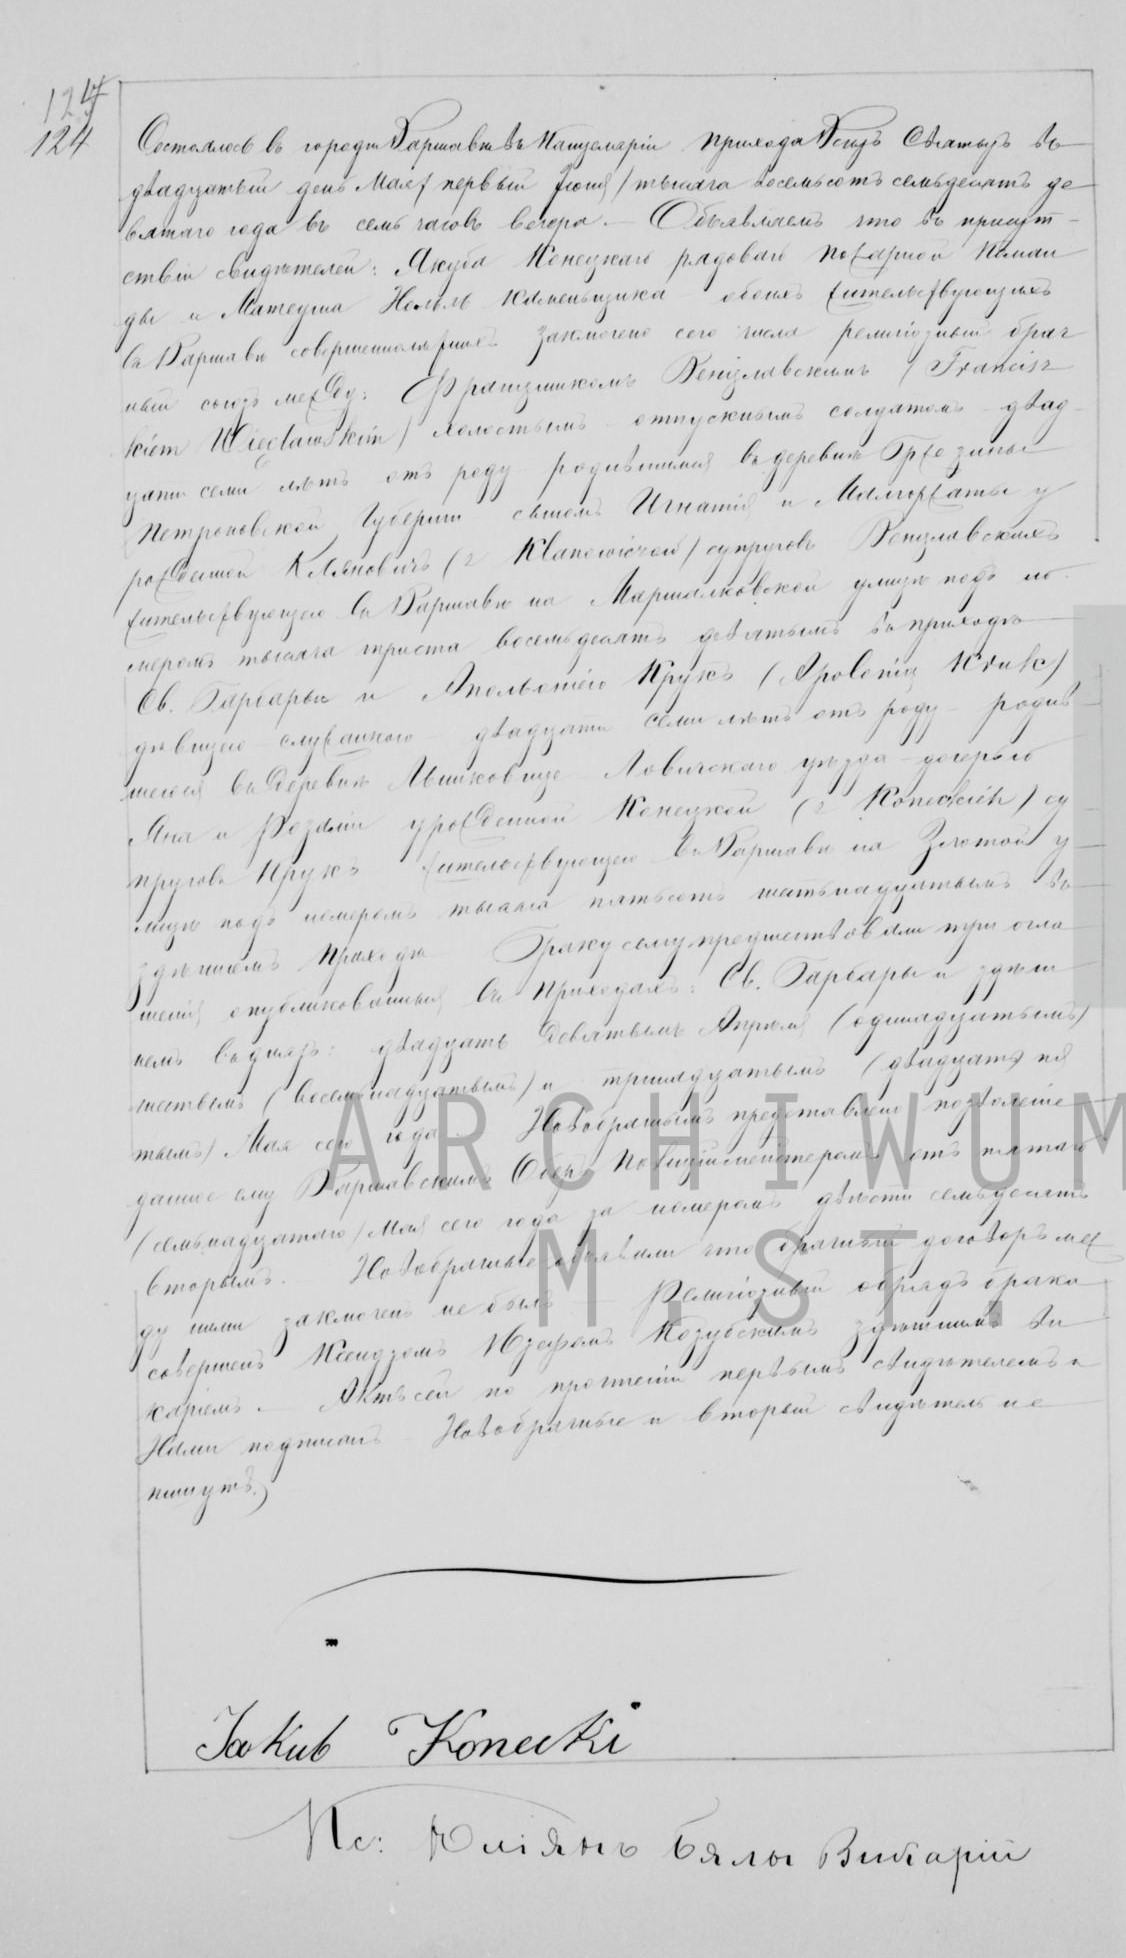 124
124
Состоялось въ городѣ Варшавѣ въ Канцеляріи прихода Всѣхъ Святыхъ въ
двадцатый день Мая /первый Іюня/ тысяча восемьсотъ семьдесятъ де
вятаго года въ семь часовъ вечера. — Объявляемъ что въ присут-
ствіи свидѣтелей: Якуба Конецкаго рядоваго пожарной Коман
ды и Матеуша каменьщика обоихъ жительствующихъ
въ Варшавѣ совершеннолѣтнихъ заключено сего числа религіозный брач
ный союзъ между: Францишкомъ Венглавскимъ / Francisz
kiem Węglawskim) холостымъ отпускнымъ солдатомъ двад
цати семи лѣтъ отъ роду родившимся въ деревнѣ
Петроковской Губерніи сыномъ Игнатія и Малгоржаты у
рожденной Кляновичъ (z Klanowiczów) супруговъ Венглавскихъ
жительствующаго въ Варшавѣ на Маршалковской улицѣ подъ но
меромъ тысяча триста восемьдесятъ девятымъ въ приходѣ
Св. Барбары и Апольонією Крукъ (Apolonią Kruk)
дѣвицею служанкою двадцати семи лѣтъ отъ роду родив
шеюся въ деревнѣ Мышковице Ловичскаго уѣзда дочерью
Яна и Розаліи урожденной Конецкой (z Koneckich) су
пруговъ Крукъ жительствующею въ Варшавѣ на Златой у
лицѣ подъ номеромъ тысяча пятьсотъ шестьнадцатымъ въ
здѣшнемъ приходѣ Браку сему предшествовали три огла
шенія опубликованныя въ приходахъ: Св. Барбары и здѣш
немъ въ дняхъ: двадцать девятымъ Апрѣля (одинадцатымъ)
шестымъ (восемьнадцатымъ) и тринадцатымъ (двадцать пя
тымъ) Мая сего года Новобрачнымъ представлено позволеніе
данное ему Варшавскимъ Оберъ Полиціймейстеромъ отъ пятаго
(семьнадцатаго) Мая сего года за номеромъ двѣсти семьдесятъ
вторымъ. Новобрачные объявили что брачный договоръ меж
ду ними заключенъ не былъ — Религіозный обрядъ брака
совершенъ Ксендзомъ Юзефомъ Козубскимъ здѣшнимъ Ви
каріемъ. — Актъ сей по прочтеніи первымъ свидѣтелемъ и
Нами подписанъ Новобрачные и вторый свидѣтель не
пишутъ.)
Jakub Konecki
Кс: Юліянъ Бялы Викарій
ARCHIWUM
M. ST.